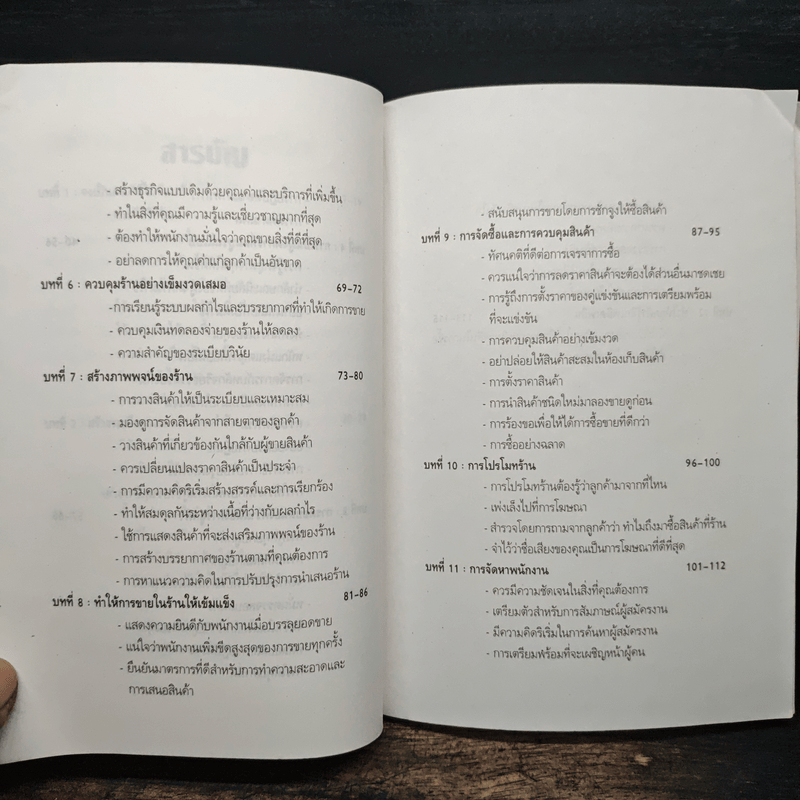 - สร้างธุรกิจแบบเดิมด้วยคุณค่าและบริการที่เพิ่มขึ้น
- ทำในสิ่งที่คุณมีความรู้และเชี่ยวชาญมากที่สุด
- ต้องทำให้พนักงานมั่นใจว่าคุณขายสิ่งที่ดีที่สุด
- อย่าลดการให้คุณค่าแก่ลูกค้าเป็นอันขาด
บทที่ 6 : ควบคุมร้านอย่างเข้มงวดเสมอ 69-72
-การเรียนรู้ระบบผลกำไรและบรรยากาศที่ทำให้เกิดการขาย
- ควบคุมเงินทดลองจ่ายของร้านให้ลดลง
- ความสำคัญของระเบียบวินัย
บทที่ 7 : สร้างภาพพจน์ของร้าน 73-80
- การวางสินค้าให้เป็นระเบียบและเหมาะสม
- มองดูการจัดสินค้าจากสายตาของลูกค้า
- วางสินค้าที่เกี่ยวข้องกันใกล้กับผู้ขายสินค้า
- ควรเปลี่ยนแปลงราคาสินค้าเป็นประจำ
- การมีความคิดริเริ่มสร้างสรรค์และการเรียกร้อง
- ทำให้สมดุลกันระหว่างเนื้อที่ว่างกับผลกำไร
- ใช้การแสดงสินค้าที่จะส่งเสริมภาพพจน์ของร้าน
- การสร้างบรรยากาศของร้านตามที่คุณต้องการ
- การหาแนวความคิดในการปรับปรุงการนำเสนอร้าน
บทที่ 8 : ทำให้การขายในร้านให้เข้มแข็ง 81-86
- แสดงความยินดีกับพนักงานเมื่อบรรลุยอดขาย
- แน่ใจว่าพนักงานเพิ่มขีดสูงสุดของการขายทุกครั้ง
- ยืนยันมาตรการที่ดีสำหรับการทำความสะอาดและ
การเสนอสินค้า
- สนับสนุนการขายโดยการชักจูงให้ซื้อสินค้า
บทที่ 9 : การจัดซื้อและการควบคุมสินค้า 87-95
- ทัศนคติที่ดีต่อการเจรจาการซื้อ
- ควรแน่ใจว่าการลดราคาสินค้าจะต้องได้ส่วนอื่นมาชดเชย
- การรู้ถึงการตั้งราคาของคู่แข่งขันและการเตรียมพร้อม
ที่จะแข่งขัน
- การควบคุมสินค้าอย่างเข้มงวด
- อย่าปล่อยให้สินค้าสะสมในห้องเก็บสินค้า
- การตั้งราคาสินค้า
- การนำสินค้าชนิดใหม่มาลองขายดูก่อน
- การร้องขอเพื่อให้ได้การซื้อขายที่ดีกว่า
- การซื้ออย่างฉลาด
บทที่ 10 : การโปรโมทร้าน 96-100
- การโปรโมทร้านต้องรู้ว่าลูกค้ามาจากที่ไหน
- เพ่งเล็งไปที่การโฆษณา
- สำรวจโดยการถามจากลูกค้าว่า ทำไมถึงมาซื้อสินค้าที่ร้าน
- จำไว้ว่าชื่อเสียงของคุณเป็นการโฆษณาที่ดีที่สุด
บทที่ 11 : การจัดหาพนักงาน 101-112
- ควรมีความชัดเจนในสิ่งที่คุณต้องการ
- เตรียมตัวสำหรับการสัมภาษณ์ผู้สมัครงาน
- มีความคิดริเริ่มในการค้นหาผู้สมัครงาน
- การเตรียมพร้อมที่จะเผชิญหน้าผู้คน